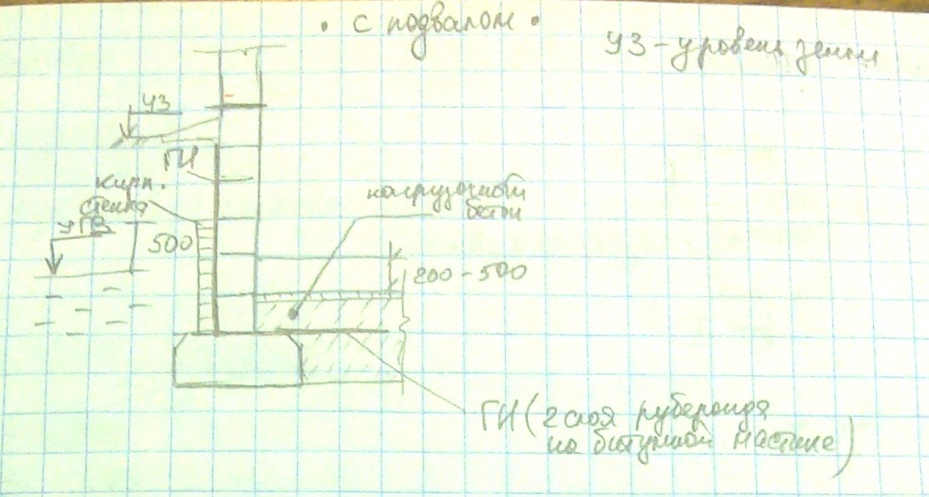 • с подвалом •
УЗ - уровень земли
УЗ
ГИ
кирп.
стенка
УГВ
500
нагрузочный
бетон
200 - 500
ГИ (2 слоя рубероида
на битумной мастике)